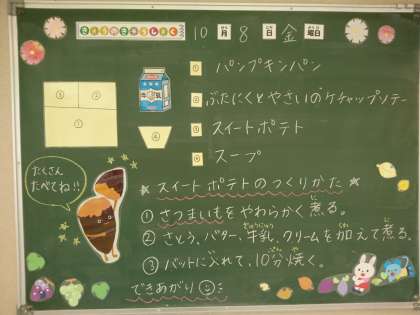 きょうのきゅうしょく 10月8日金曜日
① パンプキンパン
② ぶたにくとやさいのケチャップソテー
③ スイートポテト
④ スープ
③ ②
①
④
牛乳
たくさん
たべてね!!
★スイートポテトのつくりかた★
① さつまいもをやわらかく煮る。
② さとう、バター、牛乳、クリームを加えて煮る。
③ バットに入れて、10分焼く。
できあがり